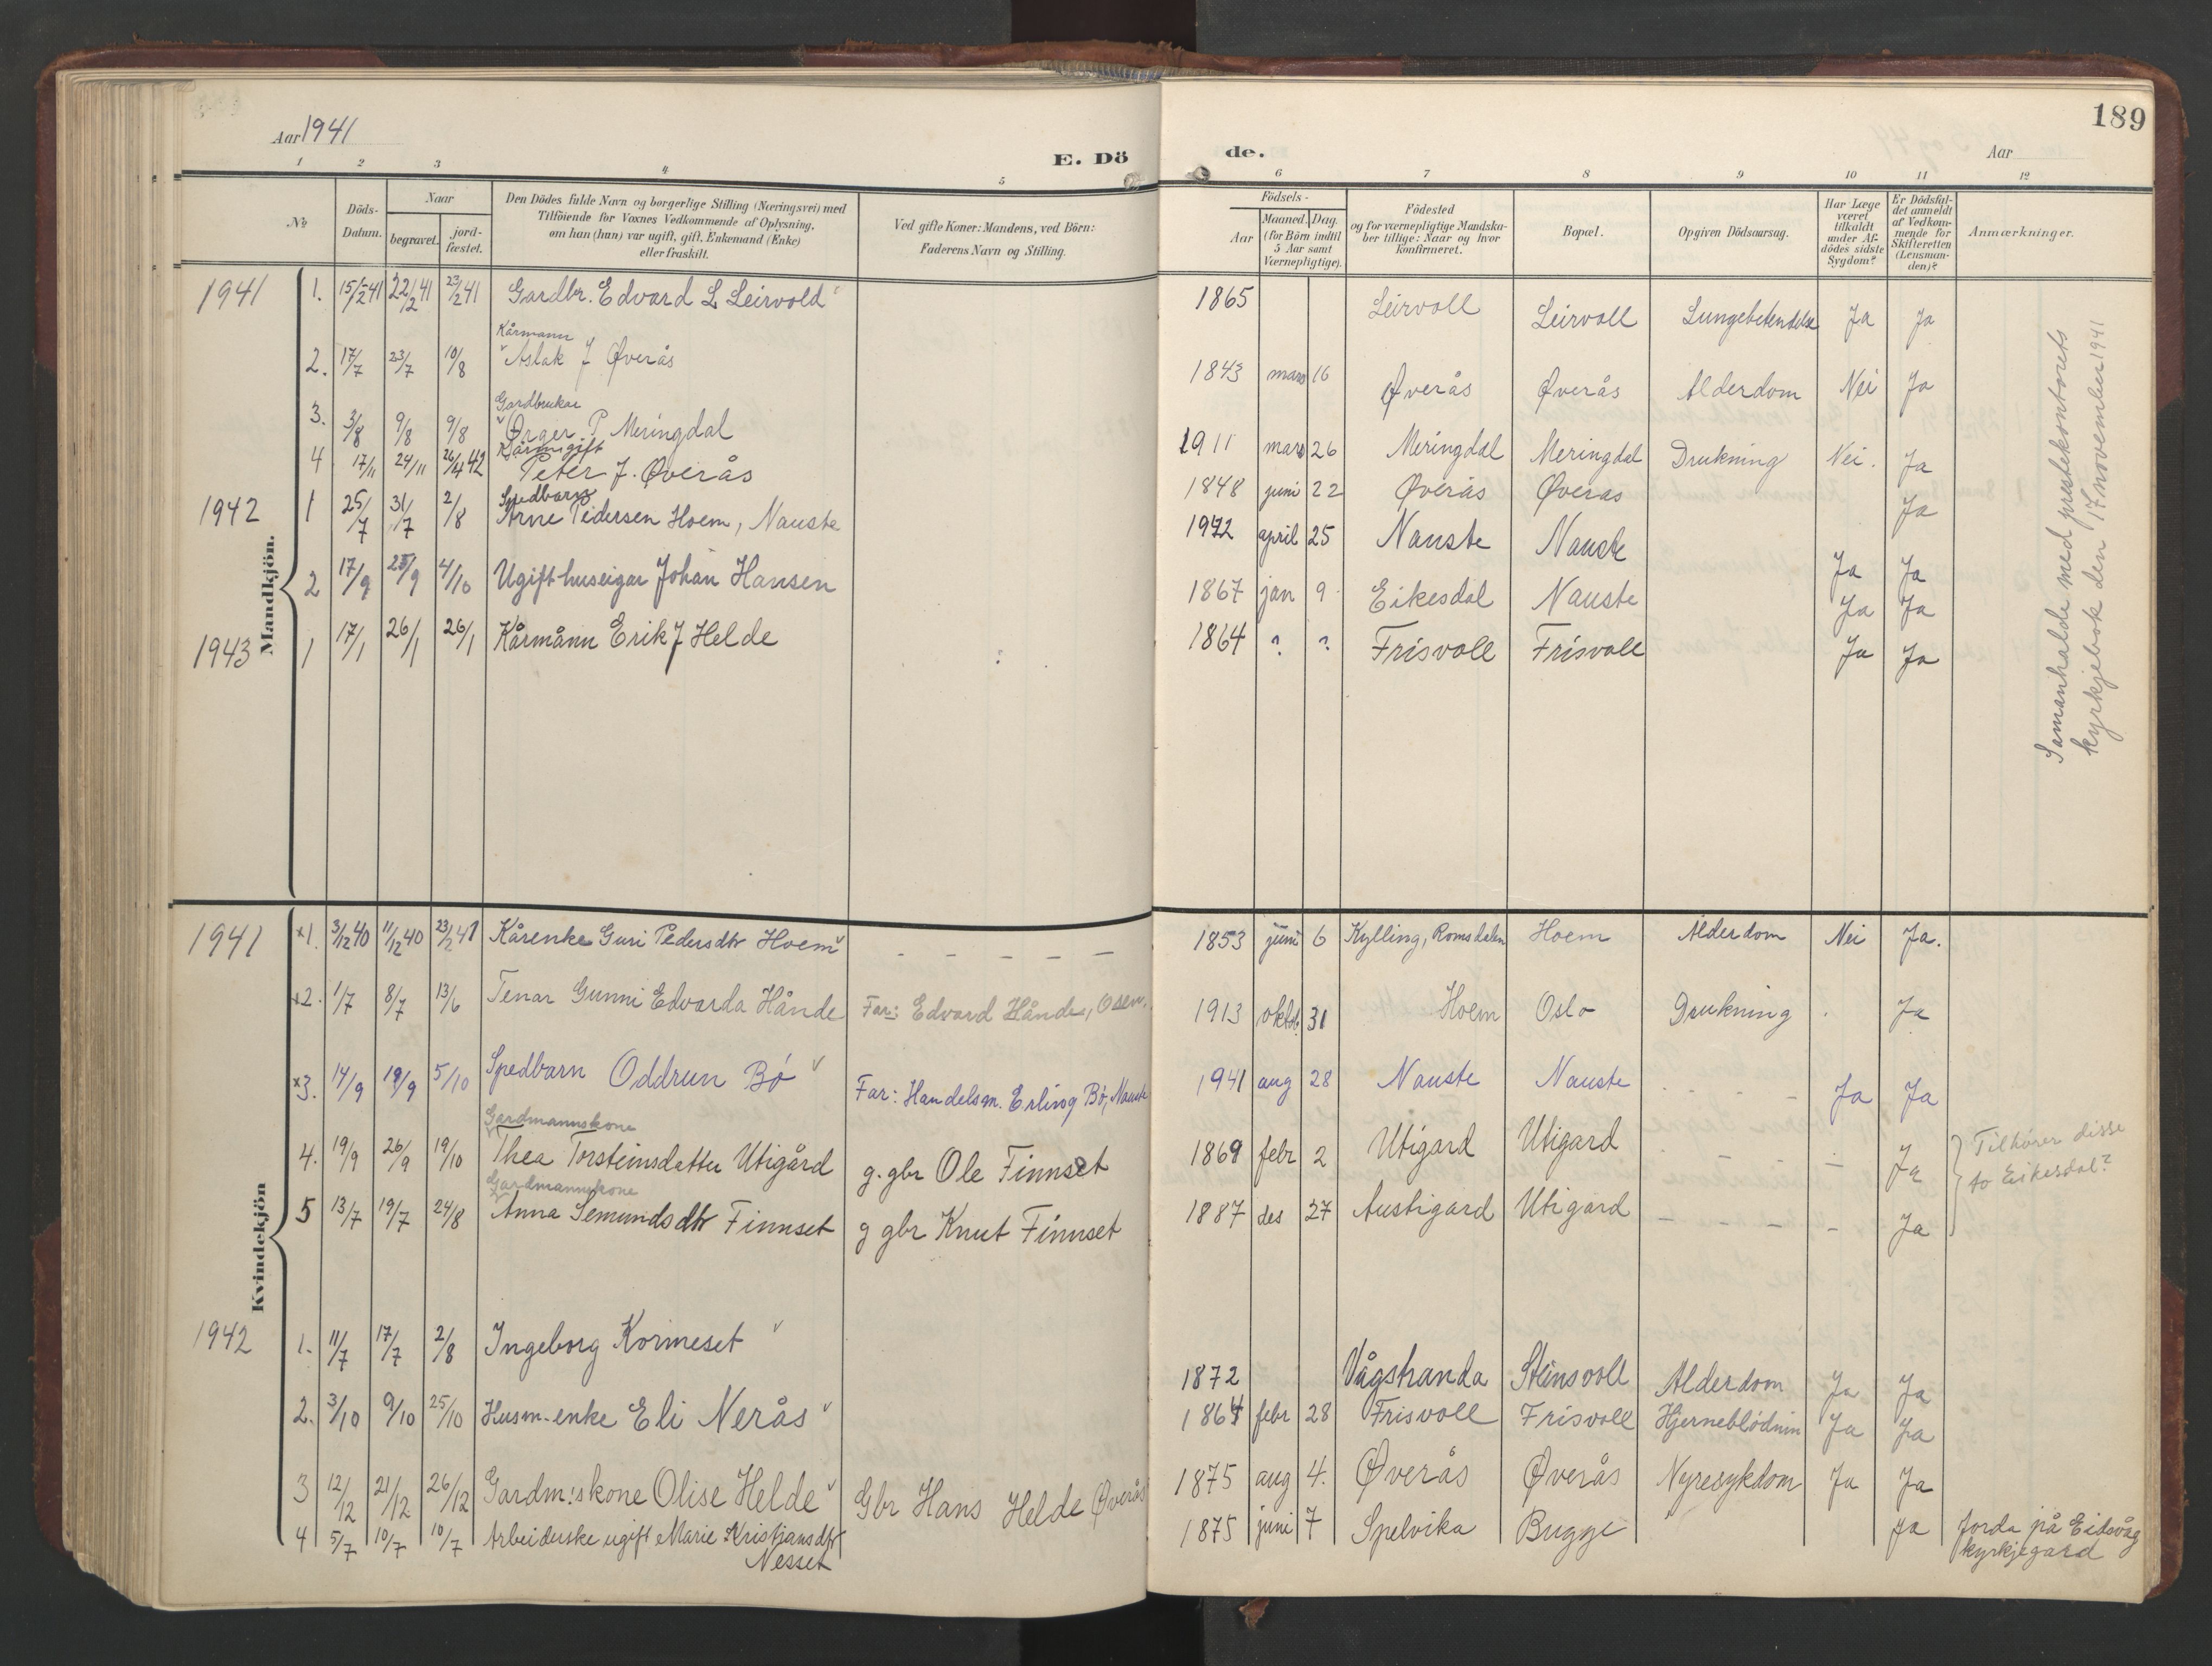 189
Aar 1941
E. Dö de.
Aar
1 2 3 4 5 6 7 8 9 10 11 12
№
Döds-Datum.
Naar
begravet.
jord-fæstet.
Den Dödes fulde Navn og borgerlige Stilling (Næringsvei) med
Tilföiende for Voxnes Vedkommende af Oplysning,
om han (hun) var ugift, gift, Enkemand (Enke)
eller fraskilt.
Ved gifte Koner: Mandens, ved Börn:
Faderens Navn og Stilling.
Födsels-
Aar
Maaned. Dag.
(for Börn indtil
5 Aar samt
Værnepligtige).
Födested
og for værnepligtige Mandska-
ber tillige: Naar og hvor
konfirmeret.
Bopæl.
Opgiven Dödsaarsag.
Har Læge
været
tilkaldt
under Af-
dödes sidste
Sygdom?
Er Dödsfal-
det anmeldt
af Vedkom-
mende for
Skifteretten
(Lensman-
den)?
Anmærkninger.
Mandkjön.
1941 1. 15/2 41 22/2 41 23/2 41 Gardbr. Edvard L Leirvold 1865 Leirvoll Leirvoll Lungebetendelse Ja Ja
Kårmann
2. 17/7 23/7 10/8 Aslak J Øverås 1843 mars 16 Øverås Øverås Alderdom Nei Ja
Gardbrukar
3. 3/8 9/8 9/8 Ørger P Meringdal 1911 mars 26 Meringdal Meringdal Drukning Nei. Ja
Kårm. gift
4 17/11 24/11 26/4 42 Peter J. Øverås 1848 juni 22 Øverås Øverås Ja
Spedbarn
1942 1 25/7 31/7 2/8 Arne Pedersen Hoem, Nauste 1942 april 25 Nauste Nauste Ja Ja
2 17/9 25/9 4/10 Ugift huseigar Johan Hansen 1867 jan 9 Eikesdal Nauste Ja Ja
1943 1 17/1 26/1 26/1 Kårmann Erik J Helde 1864 ? ? Frisvoll Frisvoll Ja Ja
Samanhalde med prestekontorets
kyrkjebok den 17 november 1941
Kvindekjön
1941 ×1. 3/12 40 11/12 40 23/2 41 Kårenke Guri Pedersdtr Hoem – – – – – 1853 juni 6 Kylling, Romsdalen Hoem Alderdom Nei Ja.
×2. 1/7 8/7 13/6 Tenar Gunni Edvarda Hånde Far: Edvard Hånde, Osen. 1913 oktob. 31 Hoem Oslo Drukning Ja
×3. 14/9 19/9 5/10 Spedbarn Oddrun Bø Far: Handelsm. Erling Bø, Nauste 1941 aug 28 Nauste Nauste - - - Ja Ja
Gardmannskone
4. 19/9 26/9 19/10 Thea Torsteinsdatter Utigård g. gbr Ole Finnset 1869 febr 2 Utigard Utigard - - - - Ja
Tilhører disse
to Eikesdal?
Gardmannskone
5 13/7 19/7 24/8 Anna Semundsdtr Finnset g gbr Knut Finnset 1887 des 27 Austigard Utigard - - - - - Ja
1942 1. 11/7 17/7 2/8 Ingeborg Kormeset 1872 Vågstranda Steinsvoll Alderdom Ja Ja
2. 3/10 9/10 25/10 Husm.enke Eli Nerås 1864 febr 28 Frisvoll Frisvoll Hjerneblødnin Ja Ja
3 12/12 21/12 26/12 Gardm.skone Olise Helde Gbr Hans Helde Øverås 1875 aug 4. Øverås Øverås Nyresykdom Ja Ja
4 5/7 10/7 10/7 Arbeiderske ugift Marie Kristjansdtr 1875 juni 7 Spelvika Bugge Ja Jorda på Eidsvåg
Nesset kyrkjegard